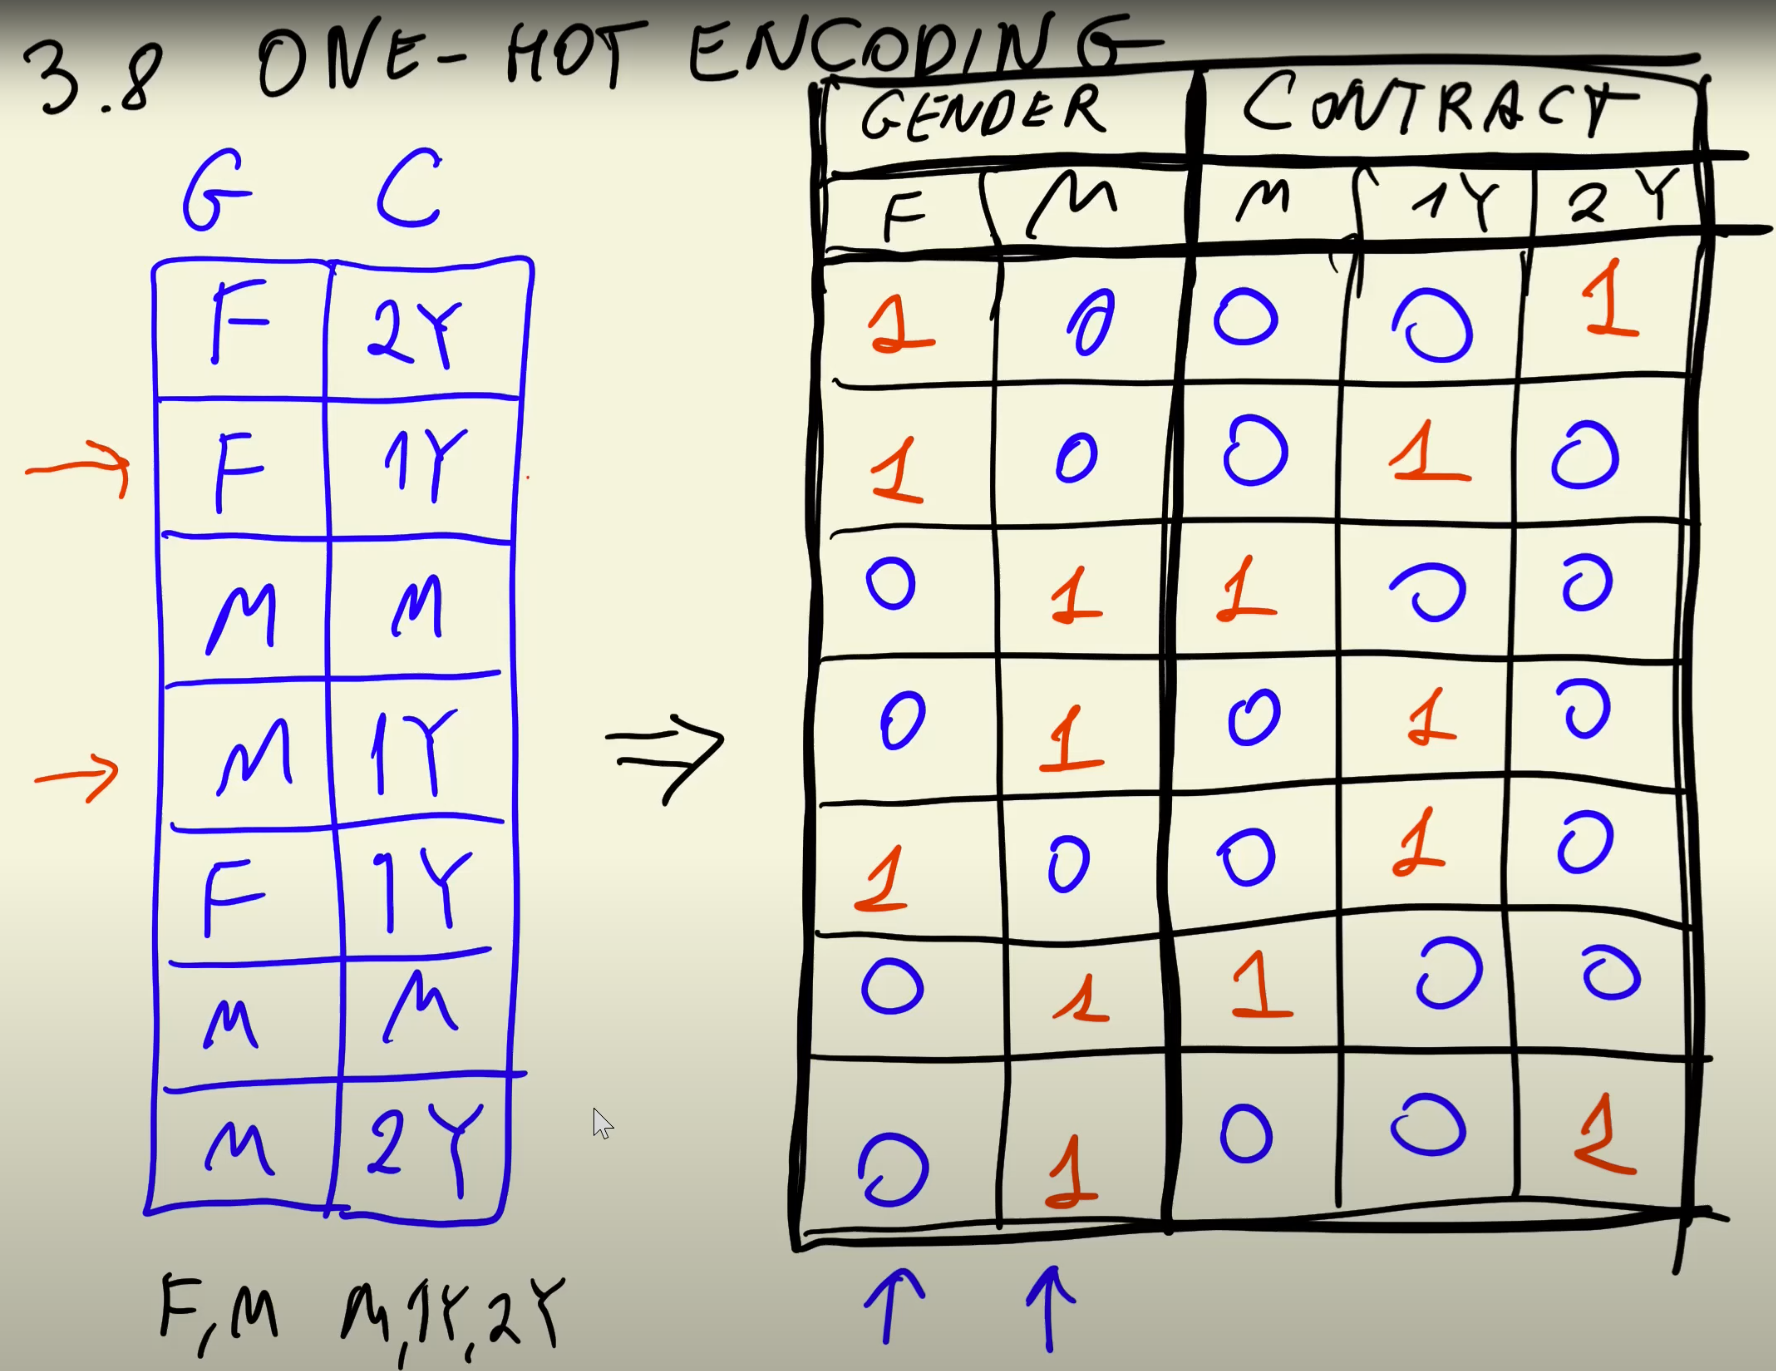 3.8 ONE-HOT ENCODING
G C
F 2Y
F 1Y
M M
M 1Y
F 1Y
M M
M 2Y
F, M M, 1Y, 2Y
GENDER CONTRACT
F M M 1Y 2Y
1 0 0 0 1
1 0 0 1 0
0 1 1 0 0
0 1 0 1 0
1 0 0 1 0
0 1 1 0 0
0 1 0 0 1